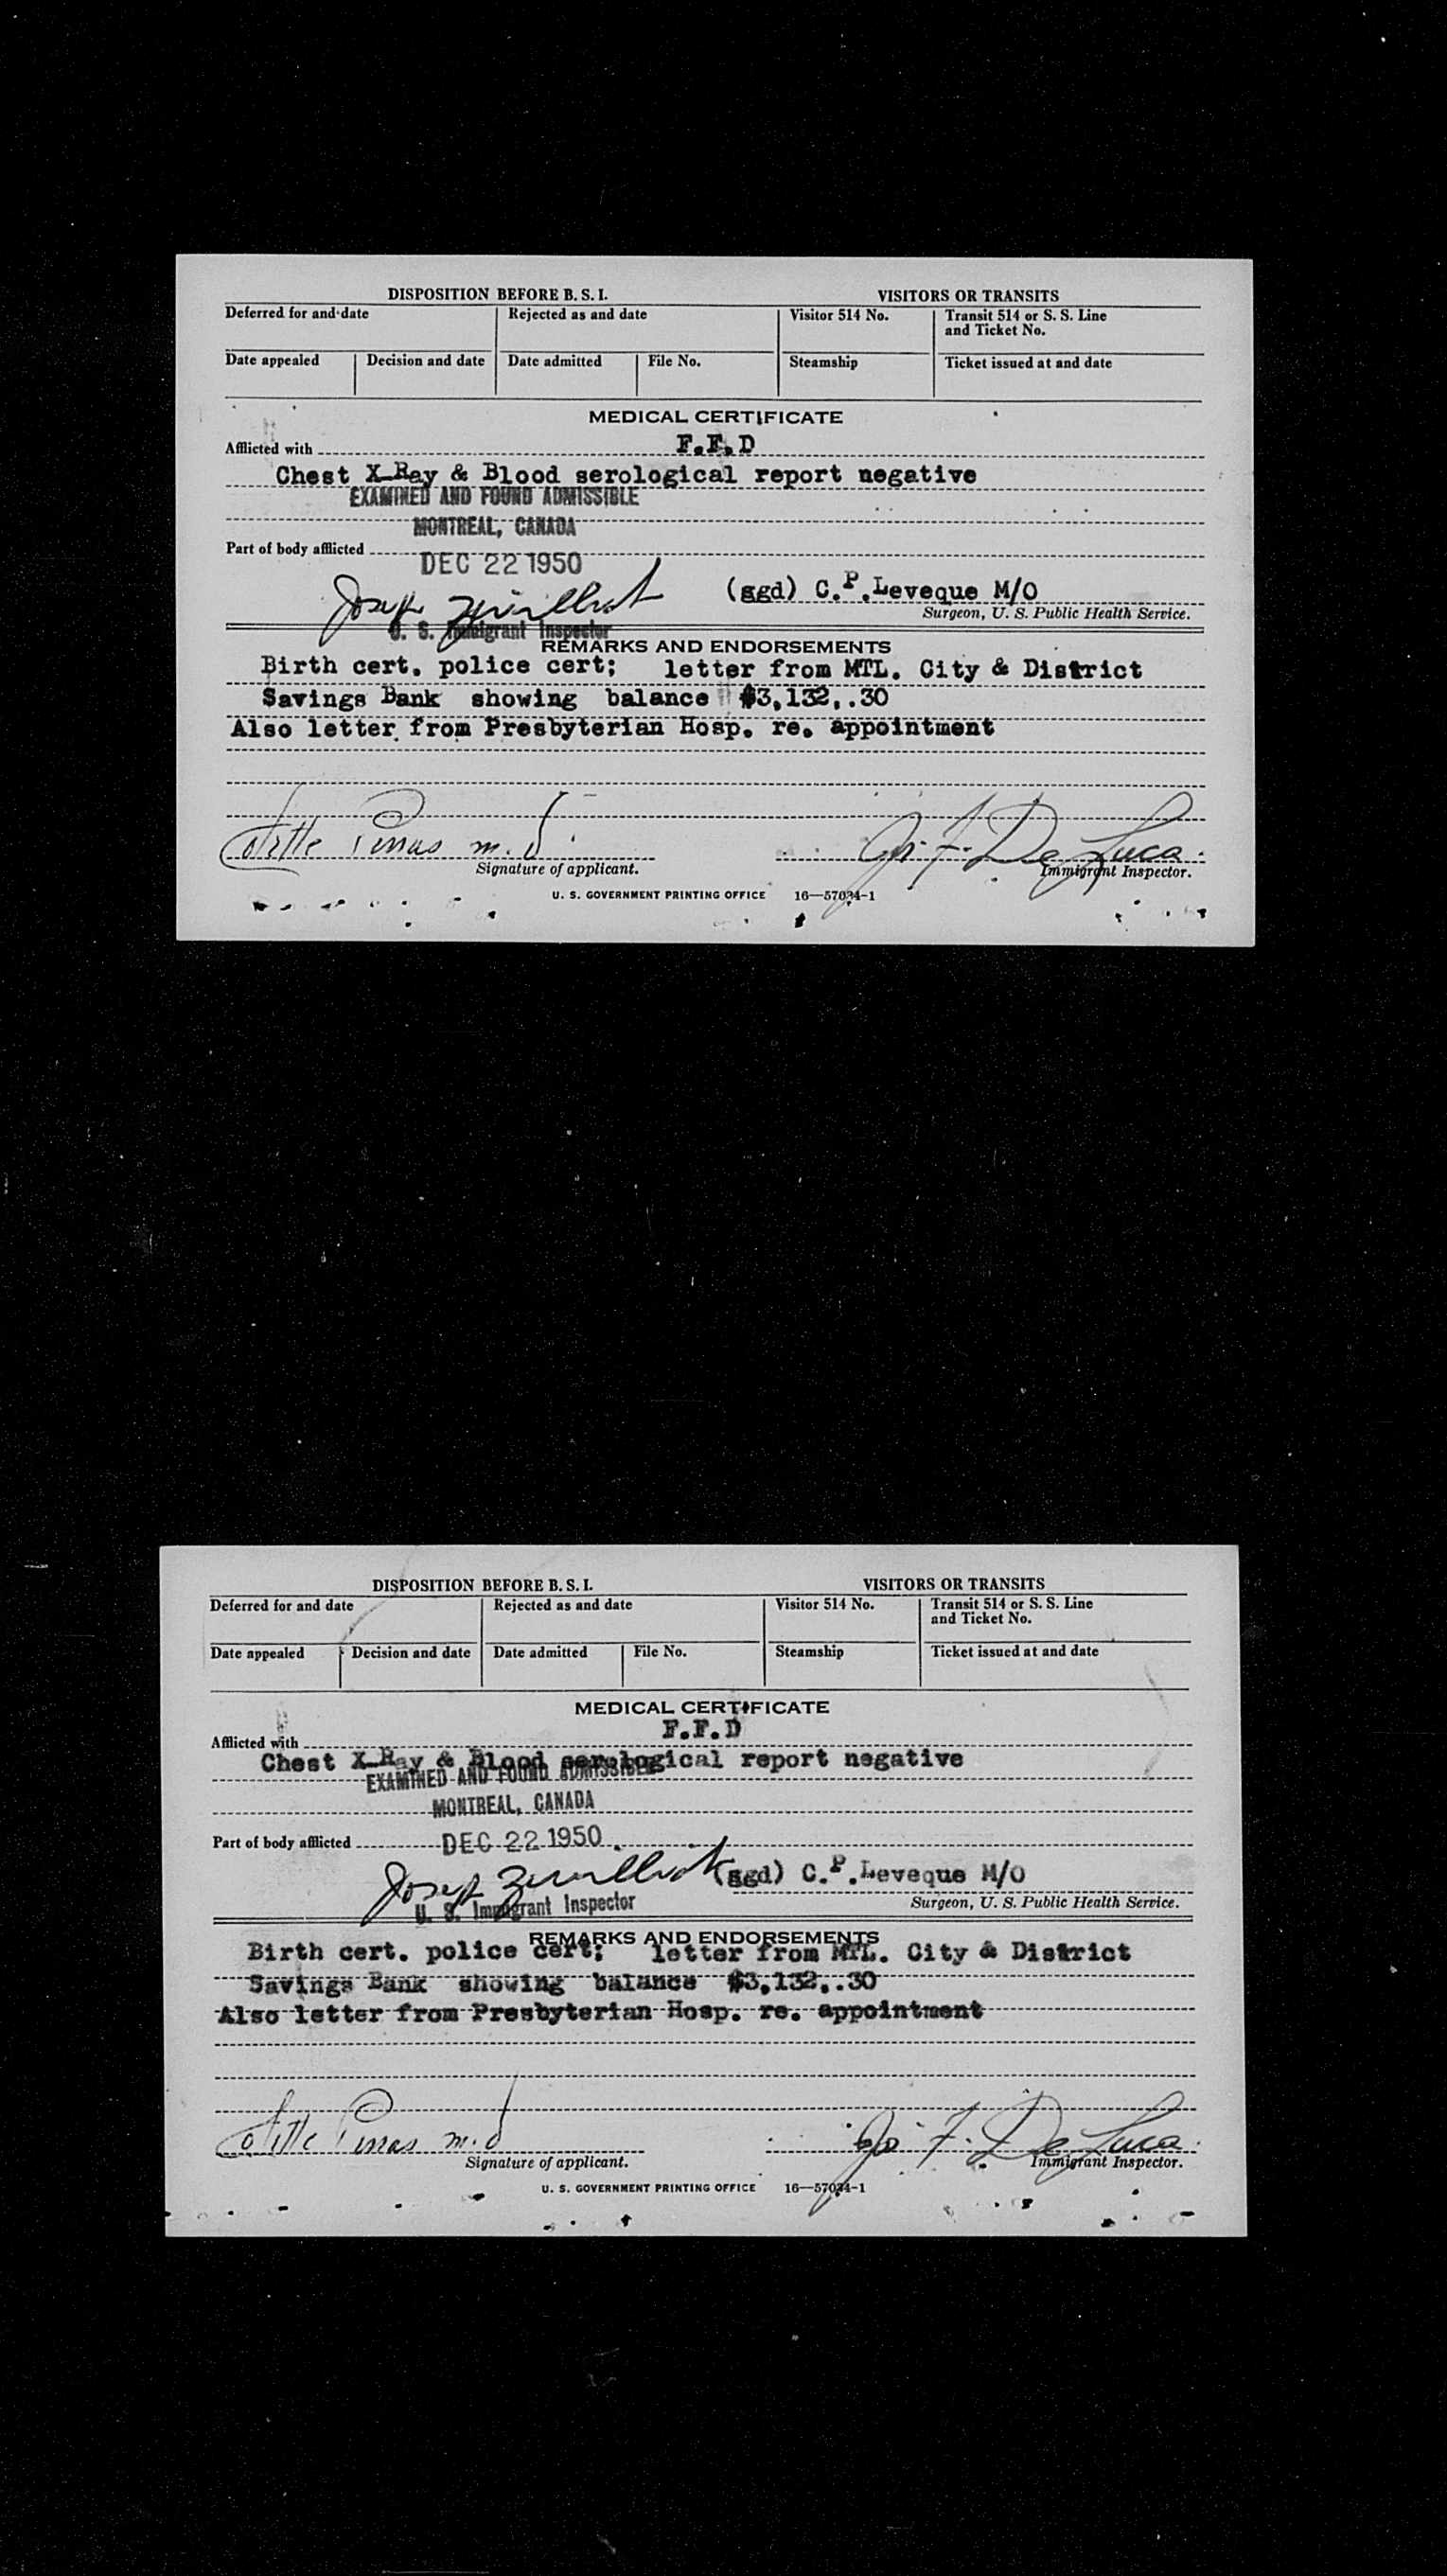 DISPOSITION BEFORE B. S. I. VISITORS OR TRANSITS
Deferred for and date Rejected as and date Visitor 514 No. Transit 514 or S. S. Line and Ticket No.
Date appealed Decision and date Date admitted File No. Steamship Ticket issued at and date
MEDICAL CERTIFICATE
Afflicted with F.F.D
Chest X-Ray & Blood serological report negative
EXAMINED AND FOUND ADMISSIBLE
MONTREAL, CANADA
Part of body afflicted
DEC 22 1950
Joseph (sgd) C.P.Leveque M/O
Surgeon, U. S. Public Health Service.
U. S. Immigrant Inspector
REMARKS AND ENDORSEMENTS
Birth cert. police cert; letter from MTL. City & District
Savings Bank showing balance $3,132,.30
Also letter from Presbyterian Hosp. re. appointment
Colette Perras m.d. Jos. F. De Luca
Signature of applicant. Immigrant Inspector.
U. S. GOVERNMENT PRINTING OFFICE 16—57034-1
DISPOSITION BEFORE B. S. I. VISITORS OR TRANSITS
Deferred for and date Rejected as and date Visitor 514 No. Transit 514 or S. S. Line and Ticket No.
Date appealed Decision and date Date admitted File No. Steamship Ticket issued at and date
MEDICAL CERTIFICATE
Afflicted with F.F.D
Chest X-Ray & Blood serological report negative
EXAMINED AND FOUND ADMISSIBLE
MONTREAL, CANADA
Part of body afflicted
DEC 22 1950
Joseph (sgd) C.P.Leveque M/O
Surgeon, U. S. Public Health Service.
U. S. Immigrant Inspector
REMARKS AND ENDORSEMENTS
Birth cert. police cert; letter from MTL. City & District
Savings Bank showing balance $3,132,.30
Also letter from Presbyterian Hosp. re. appointment
Colette Perras m.d. Jos. F. De Luca
Signature of applicant. Immigrant Inspector.
U. S. GOVERNMENT PRINTING OFFICE 16—57034-1